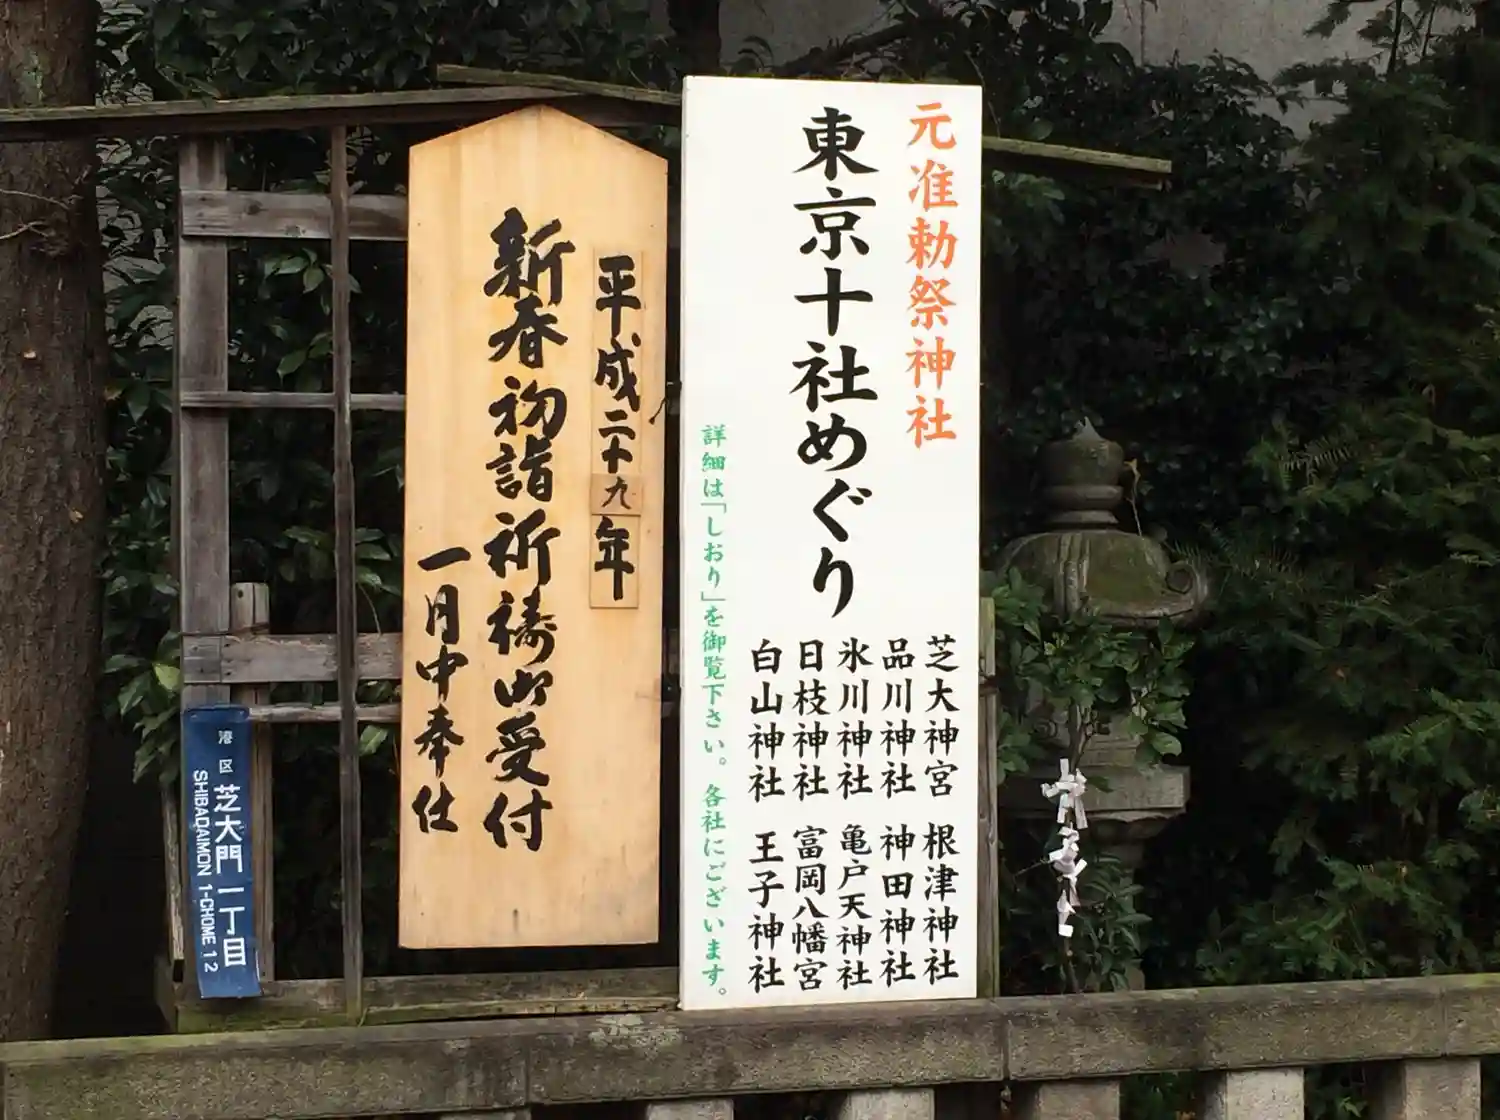 元准勅祭神社
東京十社めぐり
芝大神宮
品川神社
氷川神社
日枝神社
白山神社
根津神社
神田神社
亀戸天神社
富岡八幡宮
王子神社
詳細は「しおり」を御覧下さい。各社にございます。
平成二十九年
新春初詣祈祷御受付
一月中奉仕
港区
芝大門一丁目
SHIBADAIMON 1-CHOME 12